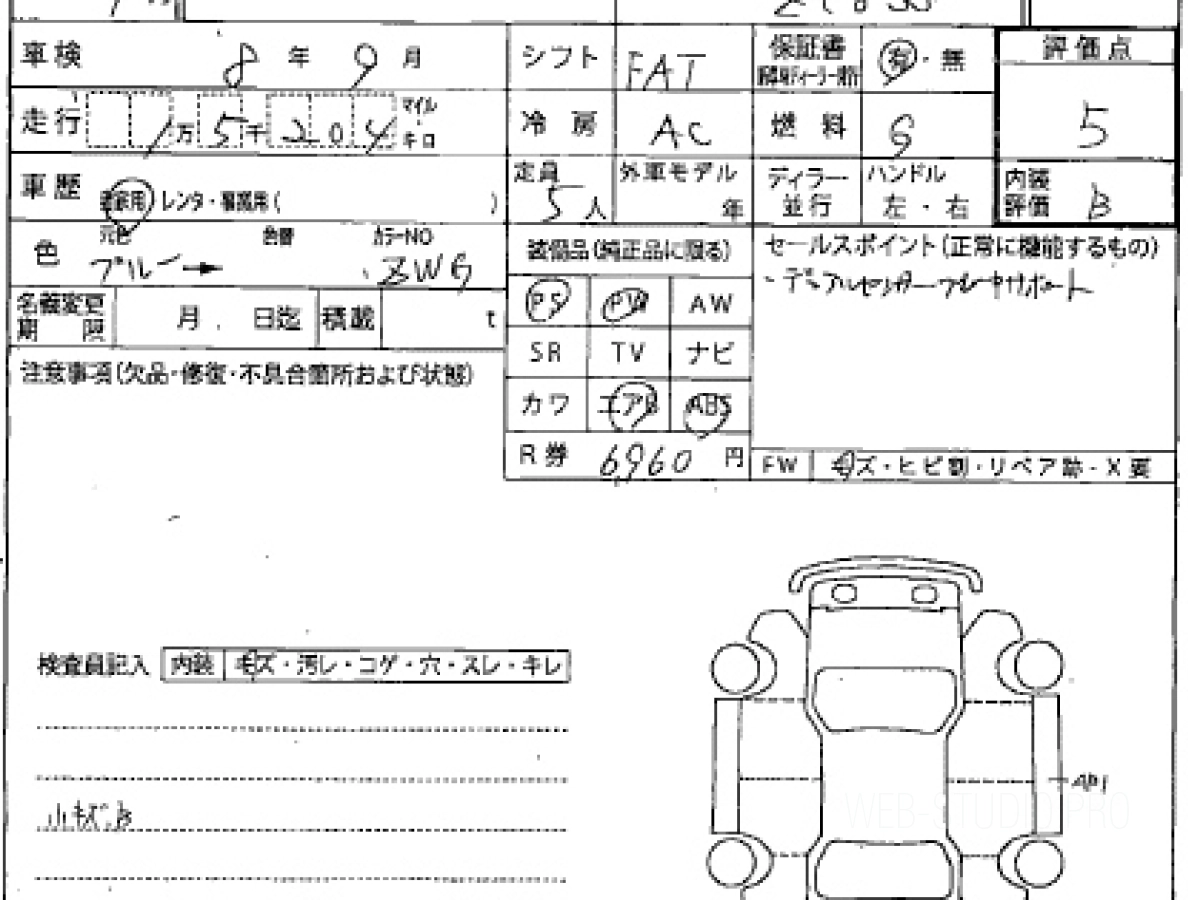 車検 8年 9月 シフト FAT 保証書 有・無 評価点
走行 1万5千204 マイル・キロ 冷房 AC 燃料 G 5
車歴 自家用 レンタ・事業用( ) 定員 5人 外車モデル 年 ディラー並行 ハンドル 左・右 内装評価 B
色 元色 ブルー→ 色替 カラーNO ZWG 装備品(純正品に限る) セールスポイント(正常に機能するもの)
・デュアルセンサーブレーキサポート
名義変更期限 月 日迄 積載 t PS PW AW
注意事項(欠品・修復・不具合箇所および状態) SR TV ナビ
カワ エアB ABS
R券 6960 円 FW キズ・ヒビ割・リペア跡・X要
検査員記入 内装 キズ・汚レ・コゲ・穴・スレ・キレ
A1
WEB-STUDIO PRO
小キズ B